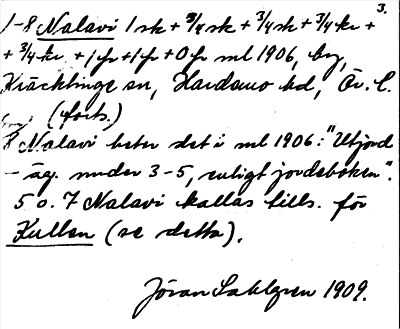 3.
1-8 Nalavi 1 sk + 3/4 sk + 3/4 sk + 3/4 kr +
+ 3/4 kr + 1 fr + 1 fr + 0 fr ml 1906, by,
Kräcklinge sn, Hardemo hd, Ör. l.
(forts.)
8 Nalavi heter det i ml 1906: "Utjord
- äg. under 3-5, enligt jordeboken".
5 o. 7 Nalavi kallas tills. för
Kullen (se detta).
Jöran Sahlgren 1909.